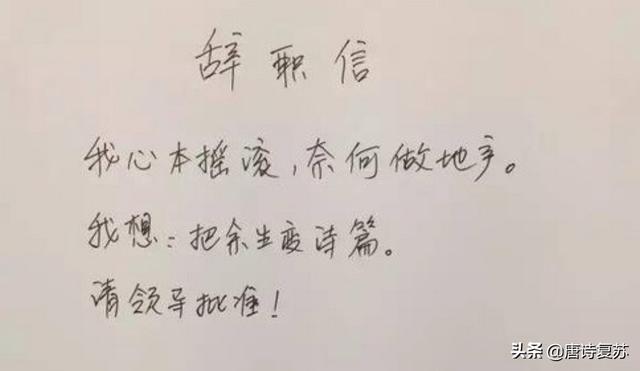 辞职信
我心本摇滚，奈何做地产。
我想：把余生变诗篇。
请领导批准！
头条 @唐诗复苏